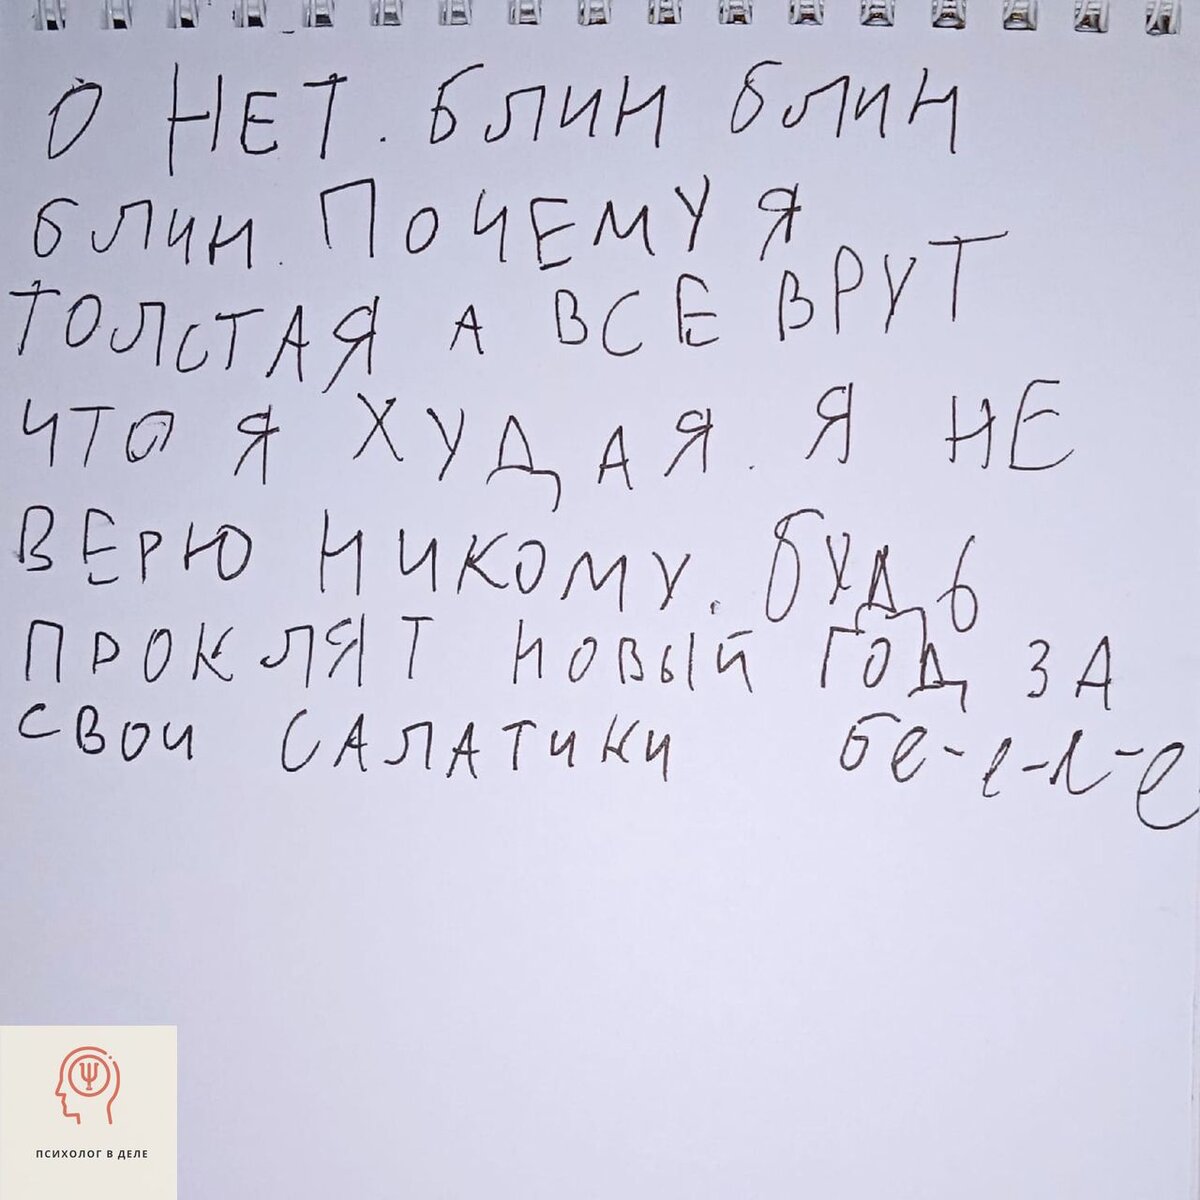 О НЕТ. БЛИН БЛИН
БЛИН. ПОЧЕМУ Я
ТОЛСТАЯ А ВСЕ ВРУТ
ЧТО Я ХУДАЯ. Я НЕ
ВЕРЮ НИКОМУ. БУДЬ
ПРОКЛЯТ НОВЫЙ ГОД ЗА
СВОИ САЛАТИКИ бе-е-е-е
ПСИХОЛОГ В ДЕЛЕ